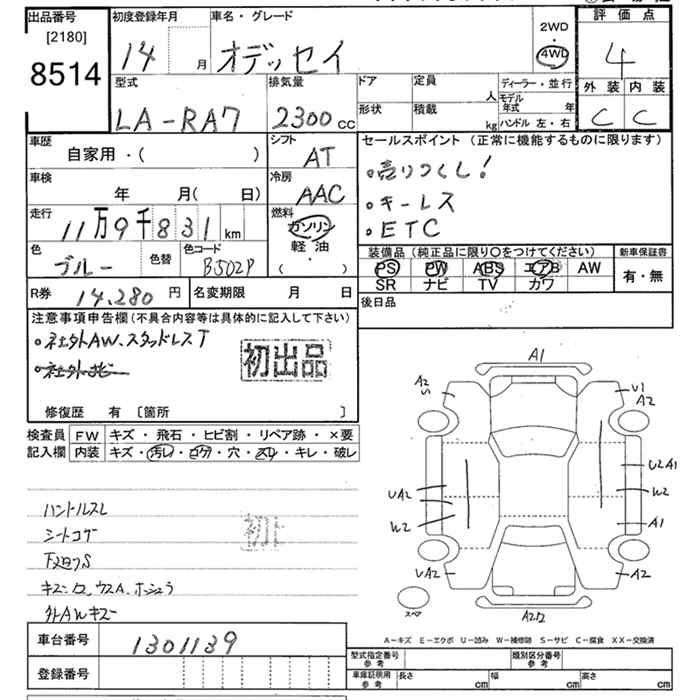 出品番号
[2180]
8514
初度登録年月
14 月
車名・グレード
オデッセイ
2WD
4WD
評価点
4
外装 内装
C C
型式
LA-RA7
排気量
2300 cc
ドア
形状
定員 人
積載 kg
ディーラー・並行
モデル年式 年
ハンドル 左・右
車歴
自家用・( )
シフト
AT
車検
年 月( 日)
冷房
AAC
走行
11万9千831 km
燃料
ガソリン
軽油
( )
色
ブルー
色替
色コード
B502P
R券
14,280 円
名変期限 月 日
セールスポイント (正常に機能するものに限ります)
・売りつくし!
・キーレス
・ETC
装備品 (純正品に限り〇をつけてください)
PS PW ABS エアB AW
SR ナビ TV カワ
新車保証書
有・無
後日品
注意事項申告欄 (不具合内容等は具体的に記入して下さい)
・社外AW、スタッドレスT
・社外ナビ
初出品
修復歴 有 [箇所 ]
検査員記入欄
FW キズ・飛石・ヒビ割・リペア跡・×要
内装 キズ・汚レ・コゲ・穴・スレ・キレ・破レ
ハンドルスレ
シートコゲ
外AWキズー
A1
A2
U
U1
A2
U2A1
W2
A1
UA2
W2
UA2
A2
スペア
A-キズ E-エクボ U-凹み W-補修跡 S-サビ C-腐食 XX-交換済
車台番号
1301139
登録番号
型式指定番号
参考
類別区分番号
参考
車庫証明用
参考
長さ cm
幅 cm
高さ cm